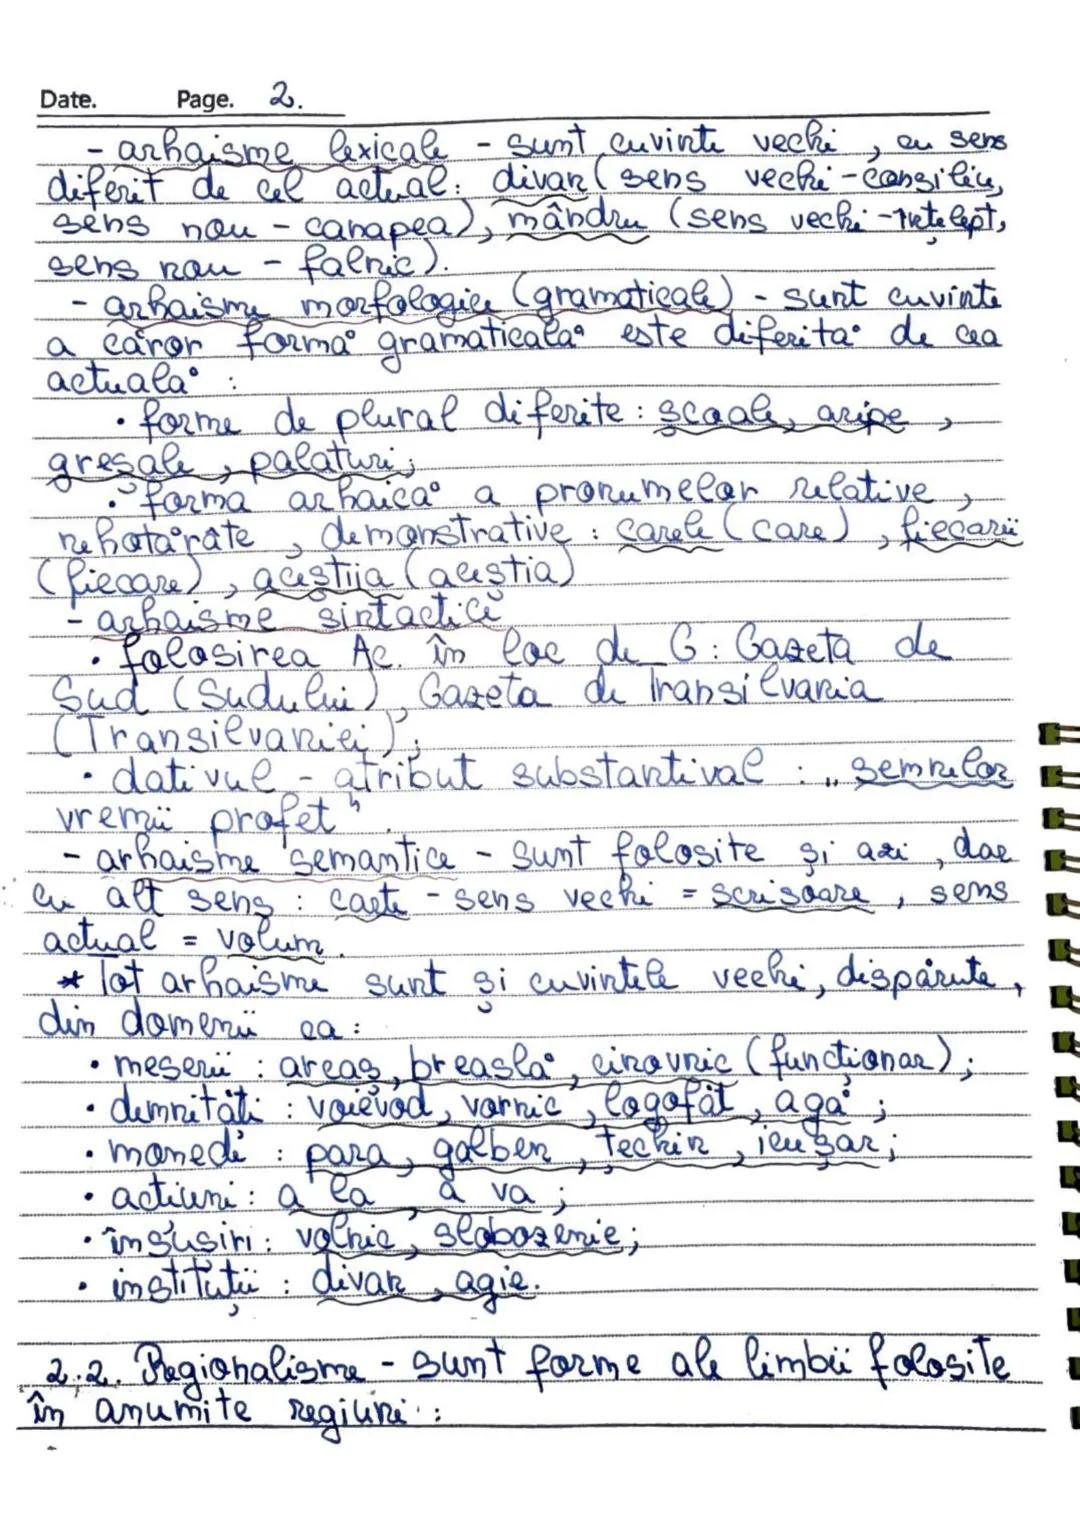 Date. Page. 2.
- arhaisme lexicale - sunt cuvinte vechi, cu sens
diferit de cel actual: divan (sens vechi - consiliu,
sens nou - canapea), mândru (sens vechi - înțelept,
sens nou - falnic).
- arhaisme morfologice (gramaticale) - sunt cuvinte
a căror formă gramaticală este diferită de cea
actuală :
• forme de plural diferite : școale, aripe,
greșale, palaturi;
• forma arhaică a pronumelor relative,
nehotărâte, demonstrative : carele (care), fiecarii
(fiecare), acestiia (aceștia)
- arhaisme sintactice
• folosirea Ac. în loc de G : Gazeta de
Sud (Sudului), Gazeta de Transilvania
(Transilvaniei);
• dativul - atribut substantival : „semnelor
vremii profet".
- arhaisme semantice - sunt folosite și azi, dar
cu alt sens : carte - sens vechi = scrisoare, sens
actual = volum.
* Tot arhaisme sunt și cuvintele vechi, dispărute,
din domenii ca :
• meserii : arcaș, breaslă, cinovnic (funcționar);
• demnități : voievod, vornic, logofăt, agă;
• monede : para, galben, techin, icușar;
• acțiuni : a la, a va;
• însușiri : volnic, slobozenie;
• instituții : divan, agie.
2.2. Regionalisme - sunt forme ale limbii folosite
în anumite regiuni :